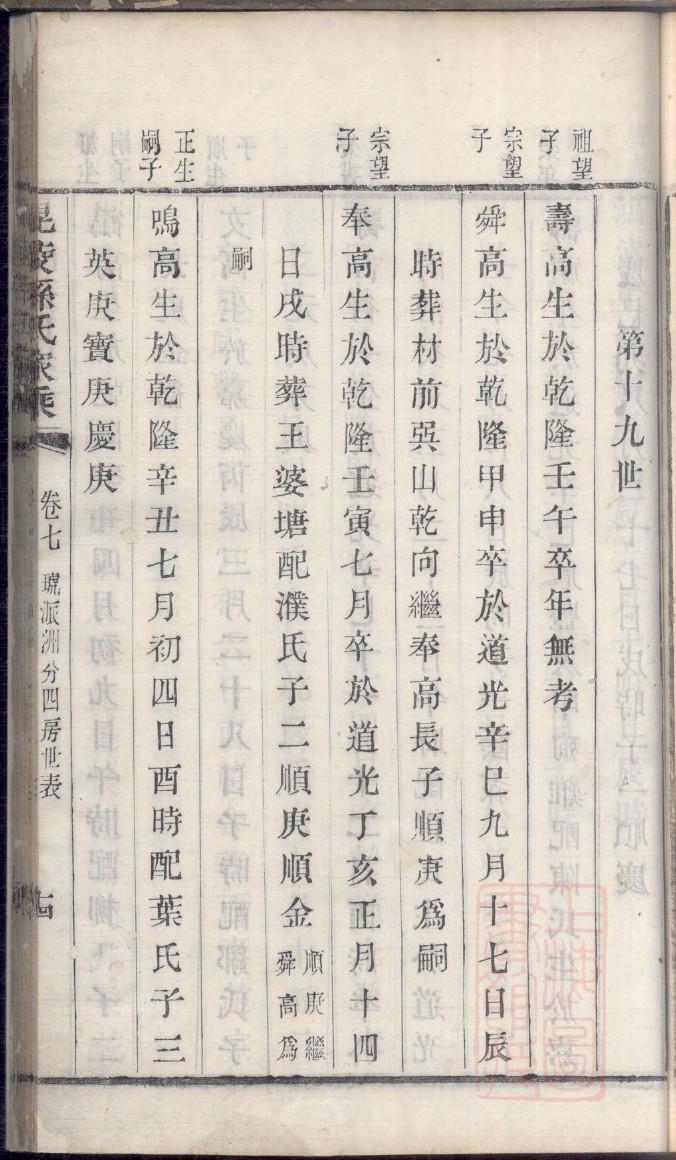 第十九世
祖望
子
壽高生於乾隆壬午卒年無考
宗望
子
舜高生於乾隆甲申卒於道光辛巳九月十七日辰
時葬材前巽山乾向繼奉高長子順庚爲嗣
宗望
子
奉高生於乾隆壬寅七月卒於道光丁亥正月十四
日戌時葬王婆塘配濮氏子二順庚順金
順庚繼
舜高爲
嗣
正生
嗣子
鳴高生於乾隆辛丑七月初四日酉時配葉氏子三
英庚寶庚慶庚
毘陵孫氏家乘
卷七
琥派洲分四房世表